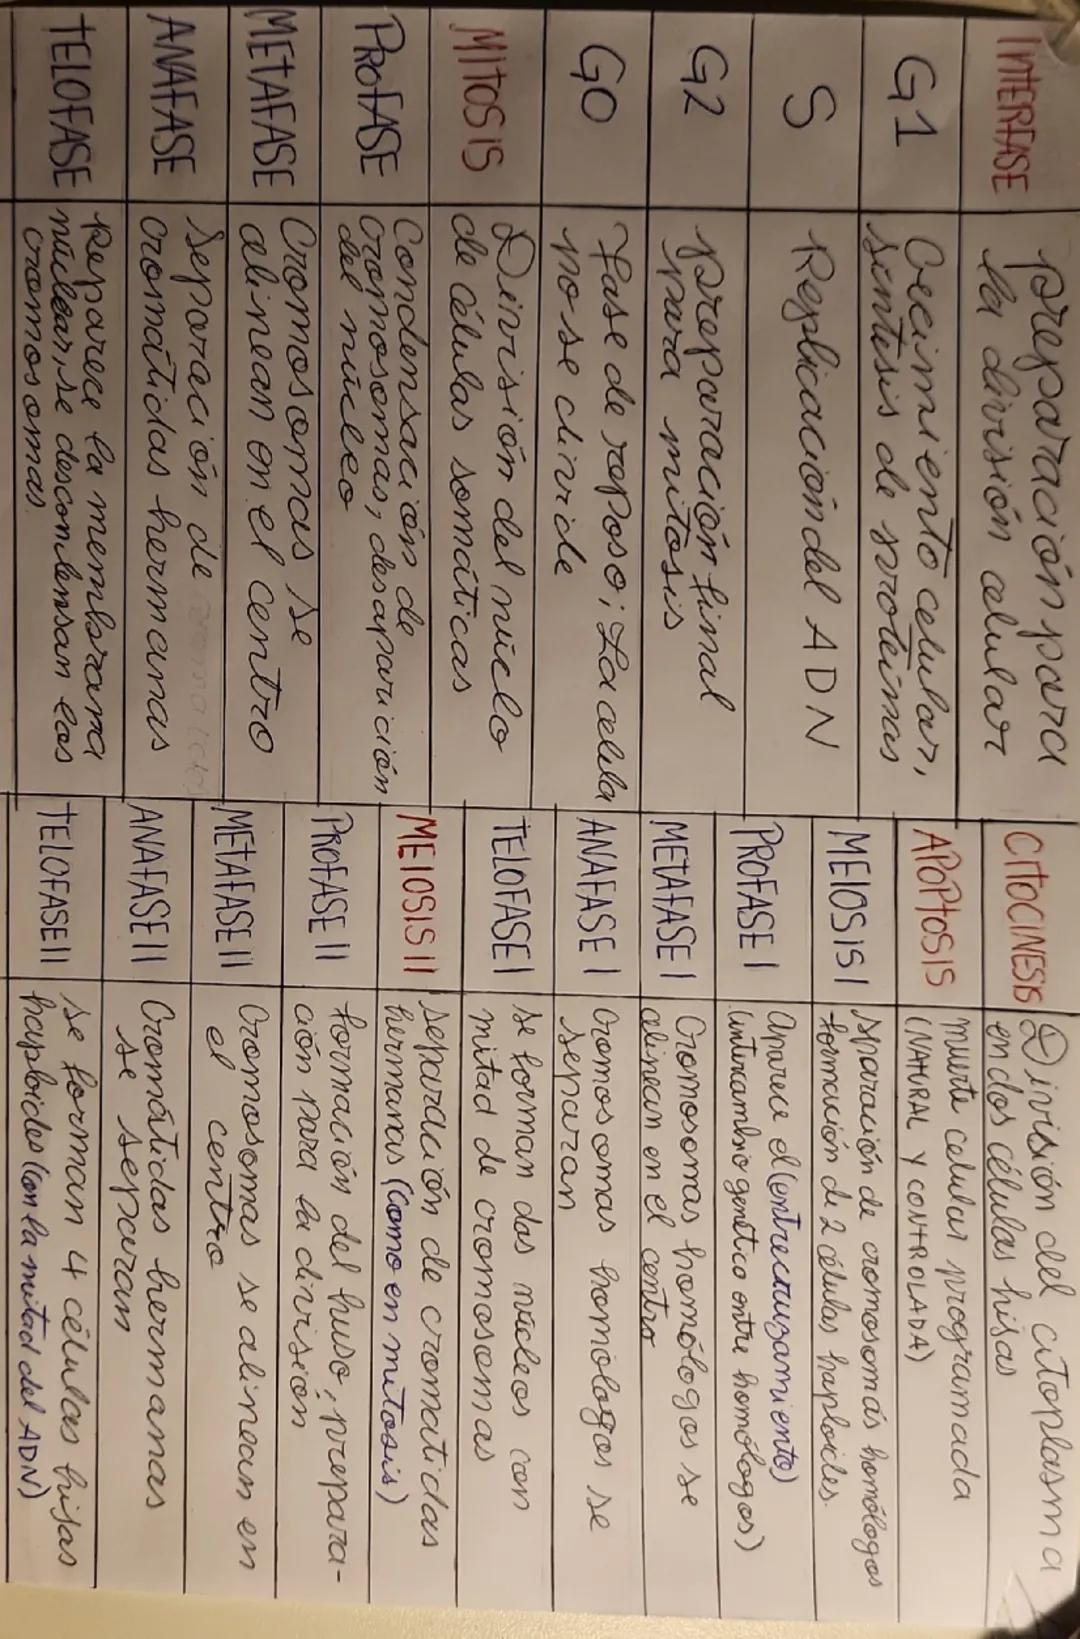 INTERFASE
preparación para
la división celular
G1
Crecimiento celular,
síntesis de proteínas
S
Replicación del ADN
G2
preparación final
para mitosis
G0
Fase de reposo; La celula
no se divide
MITOSIS
División del núclo
de células somáticas
PROFASE
Condensación de
cromosomas, desaparición
del núcleo
METAFASE
Cromosomas se
alinean en el centro
ANAFASE
Separación de
cromátidas hermanas
TELOFASE
Reparece la membrana
núclear, se descondensan los
cromosomas.
CITOCINESIS
División del citoplasma
en dos células hijas
APOPTOSIS
muerte celular programada
(NATURAL Y CONTROLADA)
MEIOSIS I
separación de cromosomas homólogos
formación de 2 células haploides.
PROFASE I
aparece el (entrecruzamiento)
(intercambio genético entre homólogos)
METAFASE I
Cromosomas homólogos se
alinean en el centro
ANAFASE I
Cromosomas homologos se
separan
TELOFASE I
se forman dos núcleos con
mitad de cromosomas
MEIOSIS II
separación de cromatidas
hermanas (como en mitosis)
PROFASE II
formación del huso, prepara-
ción para la división
METAFASE II
Cromosomas se alinean en
el centro
ANAFASE II
Cromátidas hermanas
se separan
TELOFASE II
se forman 4 células hijas
haploides (con la mitad del ADN)